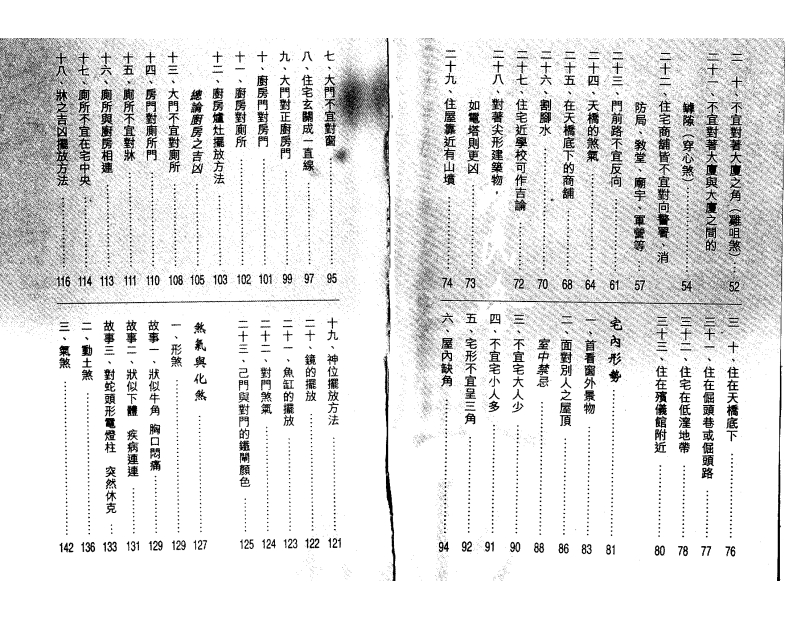 二十、不宜對著大廈之角（雞咀煞）…52
二十一、不宜對著大廈與大廈之間的
罅隙（穿心煞）…54
二十二、住宅商舖皆不宜對向警署、消
防局、教堂、廟宇、軍營等…57
二十三、門前路不宜反向…61
二十四、天橋的煞氣…64
二十五、在天橋底下的商舖…68
二十六、割腳水…70
二十七、住宅近學校可作吉論…72
二十八、對著尖形建築物，
如電塔則更凶…73
二十九、住屋靠近有山墳…74
三十、住在天橋底下…76
三十一、住在倔頭巷或倔頭路…77
三十二、住宅在低漥地帶…78
三十三、住在殯儀館附近…80
宅內形勢…81
一、首看窗外景物…83
二、面對別人之屋頂…86
室中禁忌…88
三、不宜宅大人少…90
四、不宜宅小人多…91
五、宅形不宜呈三角…92
六、屋內缺角…94
七、大門不宜對窗…95
八、住宅玄關成一直線…97
九、大門對正廚房門…99
十、廚房門對房門…101
十一、廚房對廁所…102
十二、廚房爐灶擺放方法…103
總論廚房之吉凶…105
十三、大門不宜對廁所…108
十四、房門對廁所門…110
十五、廁所不宜對牀…111
十六、廁所與廚房相連…113
十七、廁所不宜在宅中央…114
十八、牀之吉凶擺放方法…116
十九、神位擺放方法…121
二十、鏡的擺放…122
二十一、魚缸的擺放…123
二十二、對門煞氣…124
二十三、己門與對門的鐵閘顏色…125
煞氣與化煞…127
一、形煞…129
故事一、狀似牛角 胸口悶痛…129
故事二、狀似下體 疾病連連…131
故事三、對蛇頭形電燈柱 突然休克…133
二、動土煞…136
三、氣煞…142